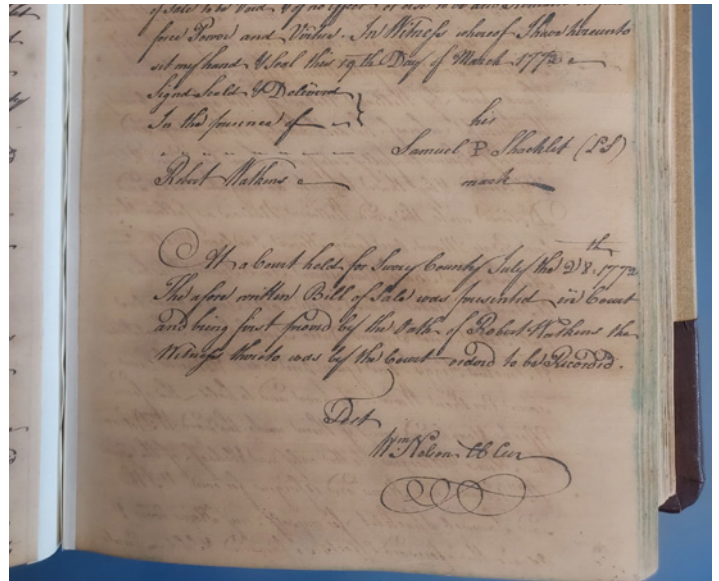 of Sale to be Void & of no effect or else to be and
force Power and Virtue. In Witness whereof I have hereunto
set my hand & Seal this 19th Day of March 1772
Signd Seald & Deliverd
In the presence of
his
Samuel P Shacklet (LS)
Robert Watkins
mark
At a Court held for Surry County July the 28th 1772
The afore written Bill of Sale was presented in Court
and being first proved by the Oath of Robert Watkins the
Witness thereto was by the Court ordord to be Recorded.
Test
Wm Nelson Cl Cur